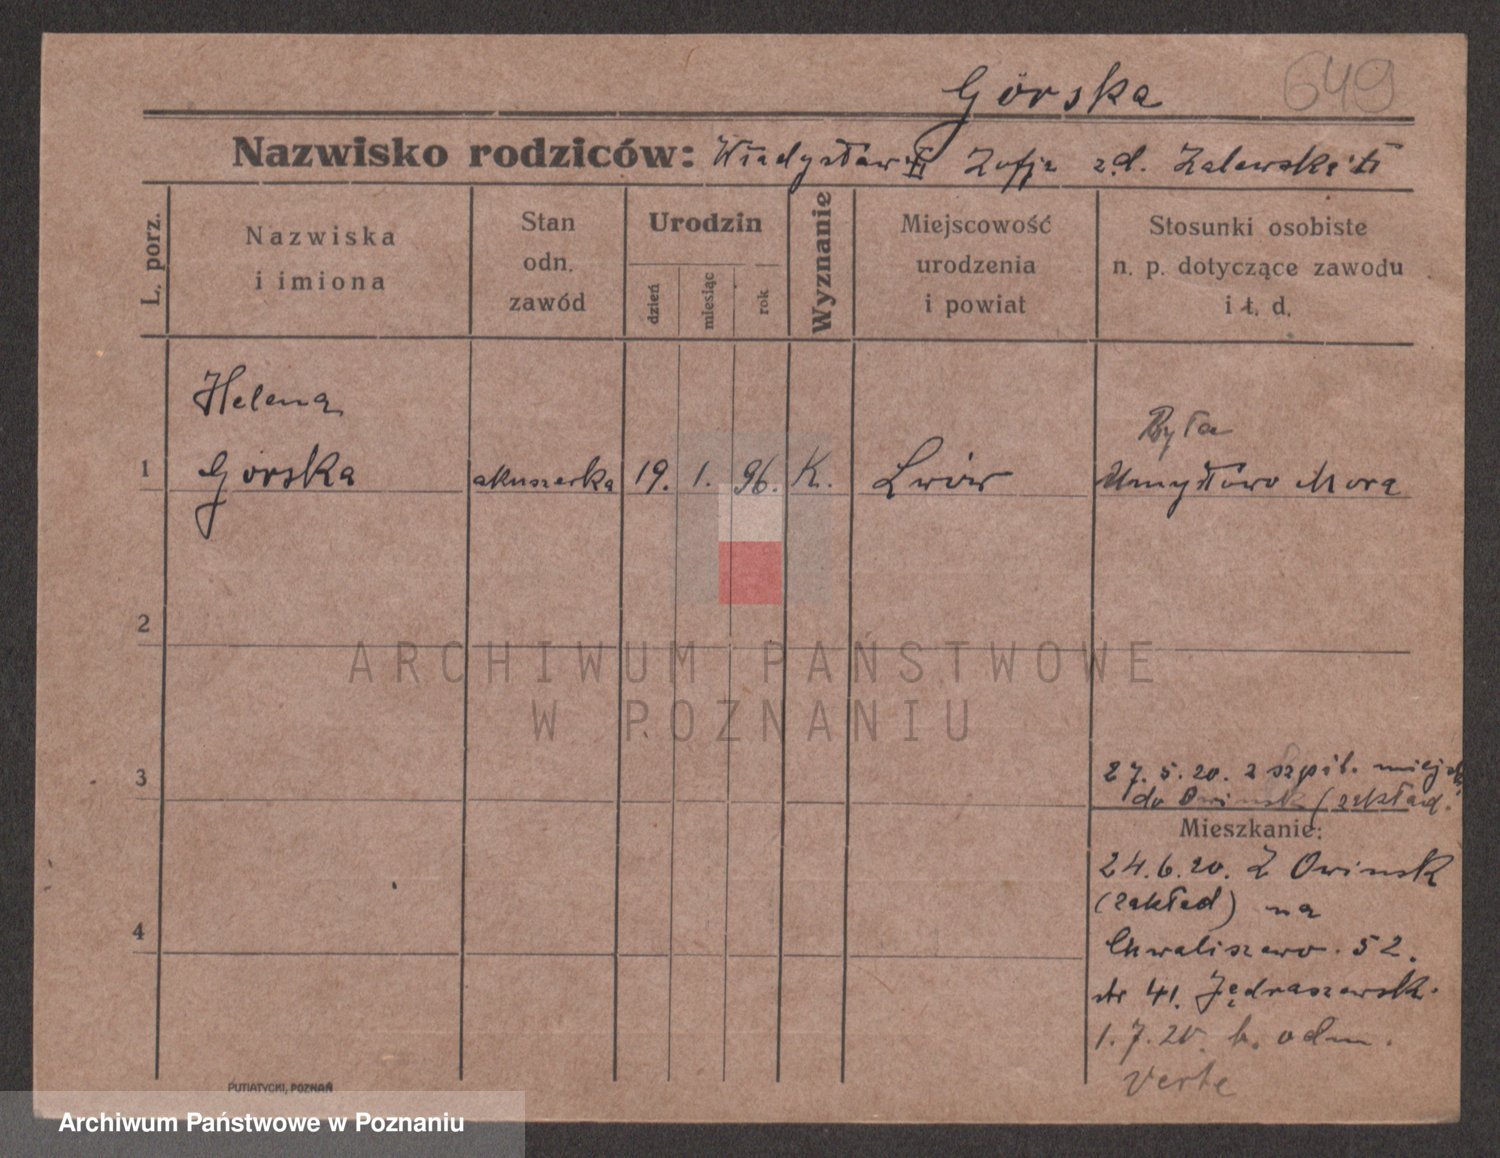 Górska
649
Nazwisko rodziców: Władysław i Zofja zd. Zalewska
L. porz.
Nazwiska
i imiona
Stan
odn.
zawód
Urodzin
dzień
miesiąc
rok
Wyznanie
Miejscowość
urodzenia
i powiat
Stosunki osobiste
n. p. dotyczące zawodu
i t. d.
Helena
Była
1 Górska akuszerka 19. 1. 96. K. Lwów Umysłowo chora
2
ARCHIWUM PAŃSTWOWE
W POZNANIU
27.5.20. z szpit. miejsk.
3
do Owinsk (zakład.
Mieszkanie:
24.6.20. Z Owinsk
(zakład) na
4
Chwaliszewo 52.
str 41. Jędraszewsk.
1.7.20. b. odm.
verte
PUTIATYCKI, POZNAŃ
Archiwum Państwowe w Poznaniu